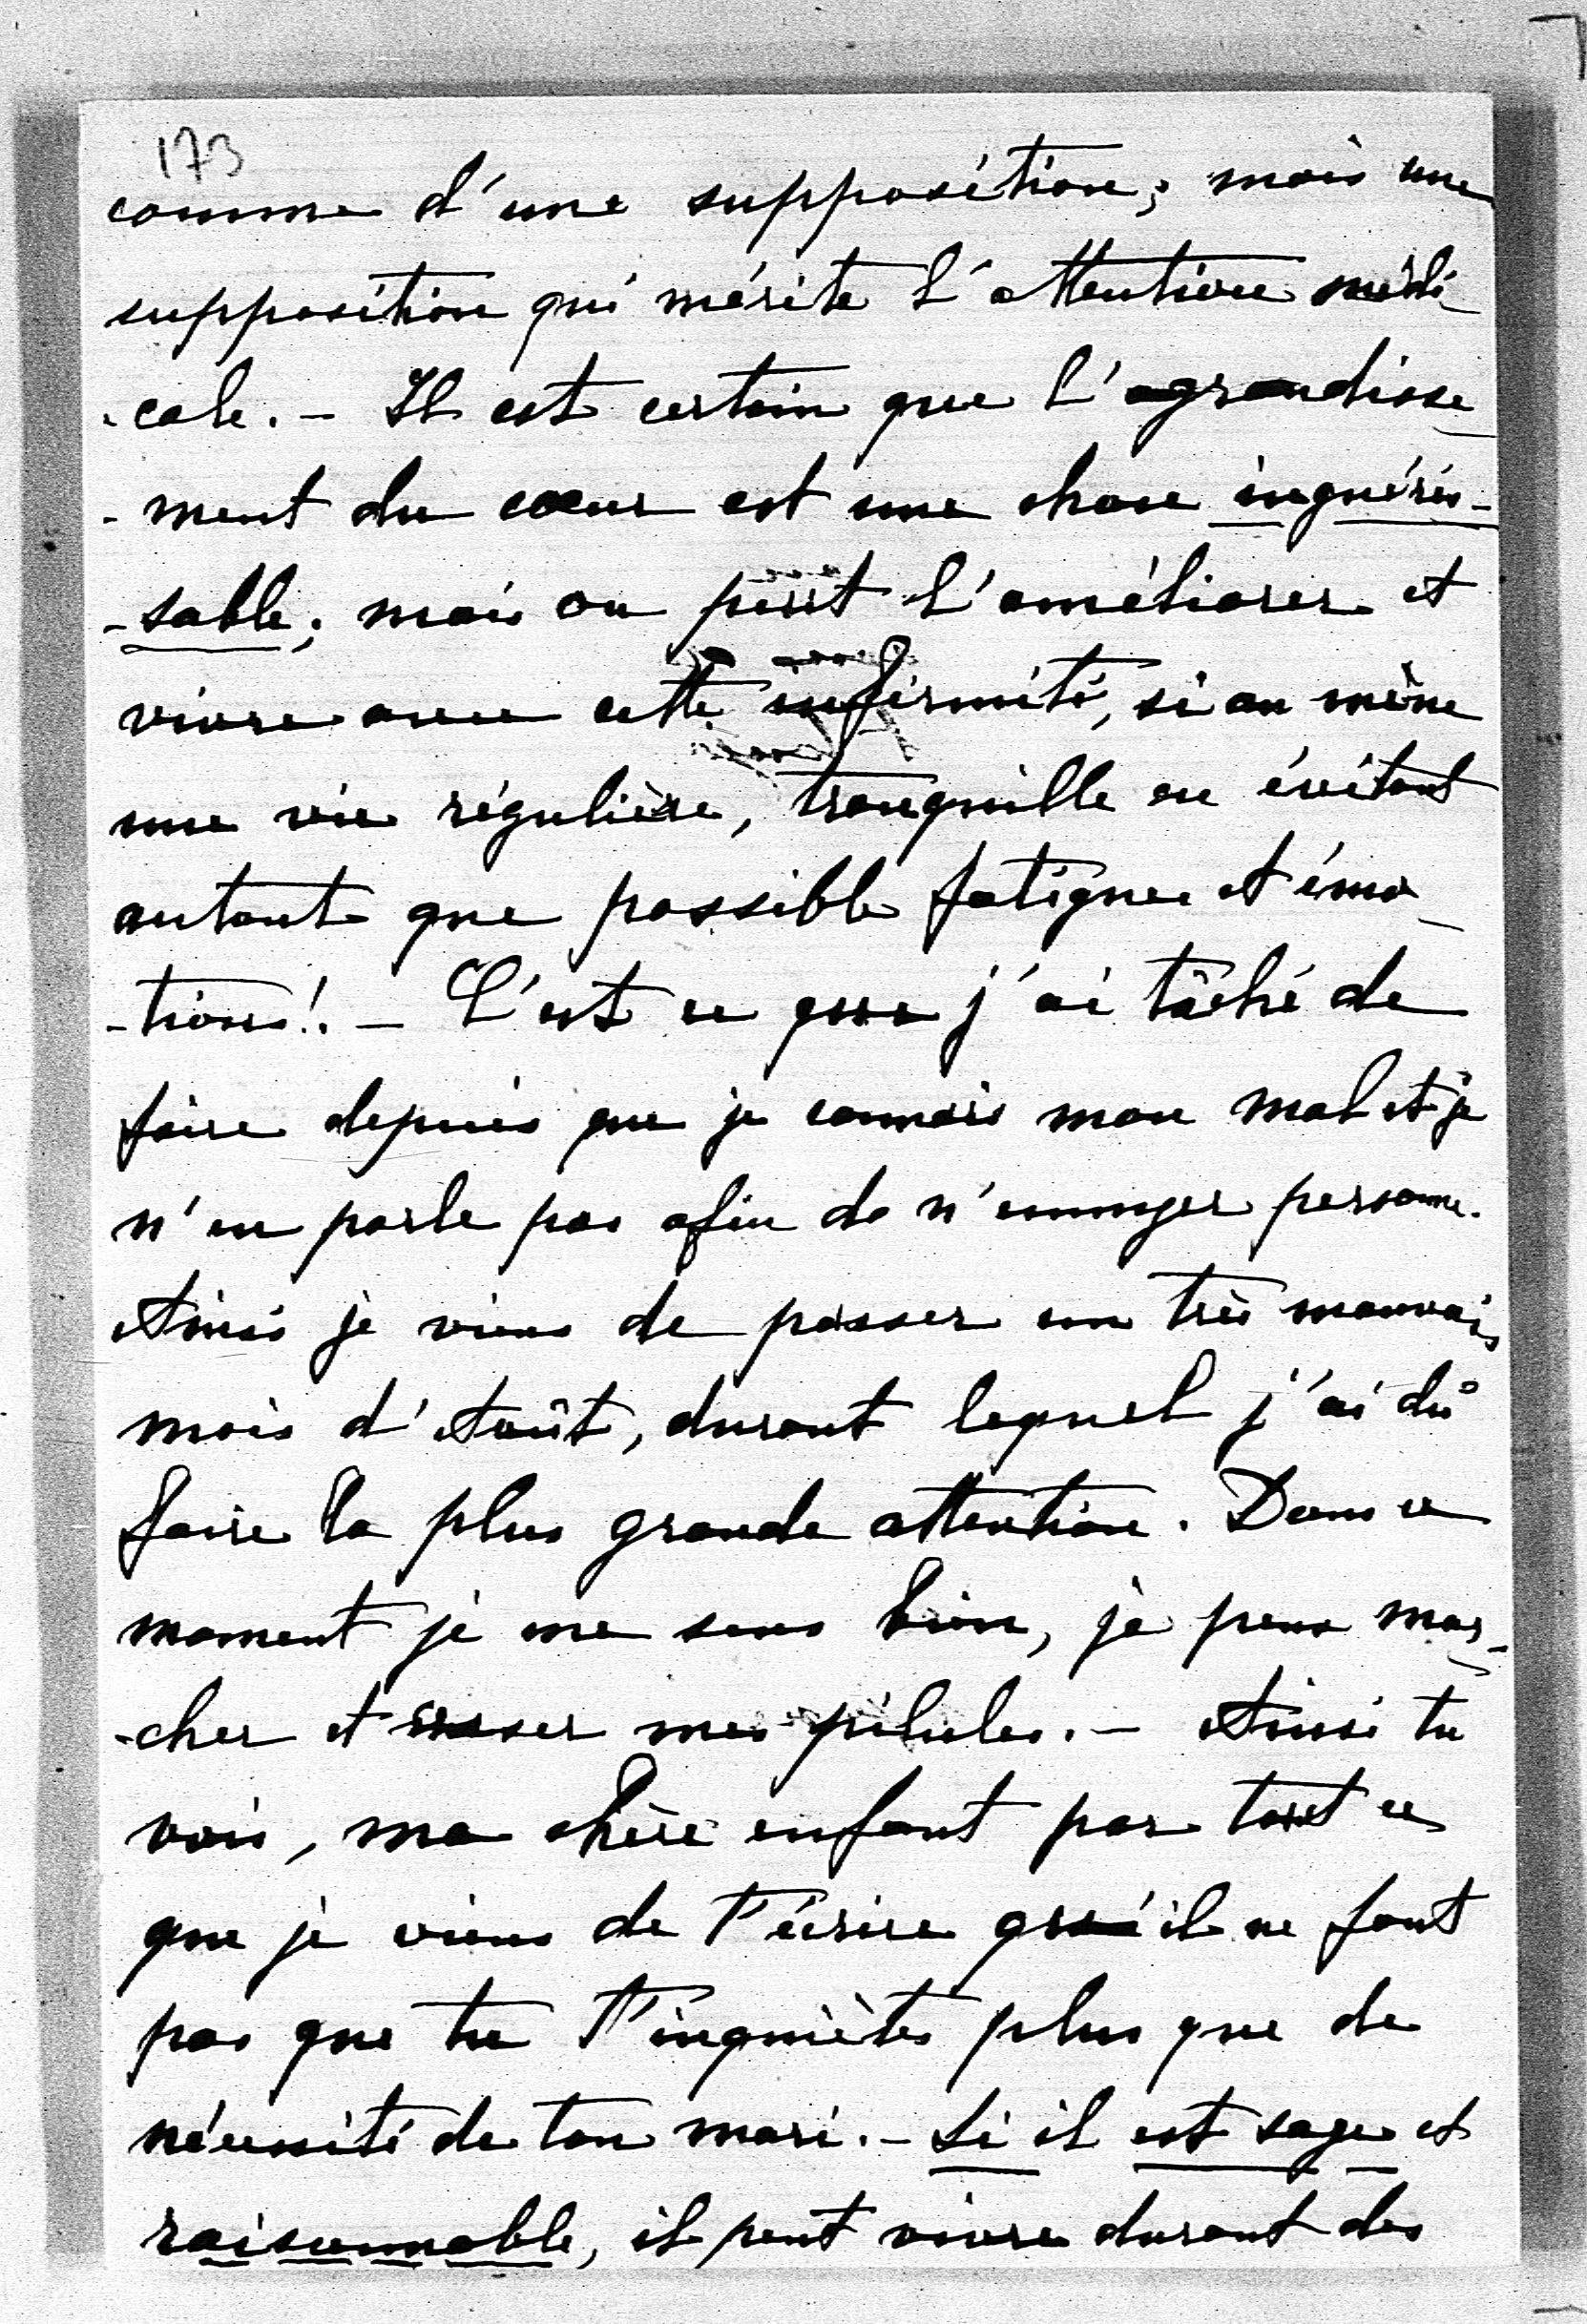 173
comme d'une supposition; mais une
supposition qui mérite l'attention médi-
-cale. - Il est certain que l'agrandisse-
-ment du coeur est une chose inguéris-
-sable; mais on peut l'améliorer et
vivre avec cette infirmité, si on mène
une vie régulière, tranquille en évitant
autant que possible fatigue et émo-
-tions!. - C'est ce que j'ai tâché de
faire depuis que je connais mon mal et je
n'en parle pas afin de n'ennuyer personne.
Ainsi je viens de passer un très mauvais
mois d'Août, durant lequel j'ai dû
faire la plus grande attention. Dans ce
moment je me sens bien, je peux mar-
-cher et cesser mes pilules. - Ainsi tu
vois, ma chère enfant par tout ce
que je viens de t'écrire qu'il ne faut
pas que tu t'inquiètes plus que de
nécessité de ton mari. - Si il est sage et
raisonnable, il peut vivre durant des